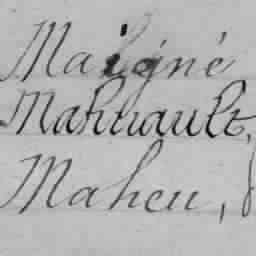 Maigné
Mahuault,
Maheu,